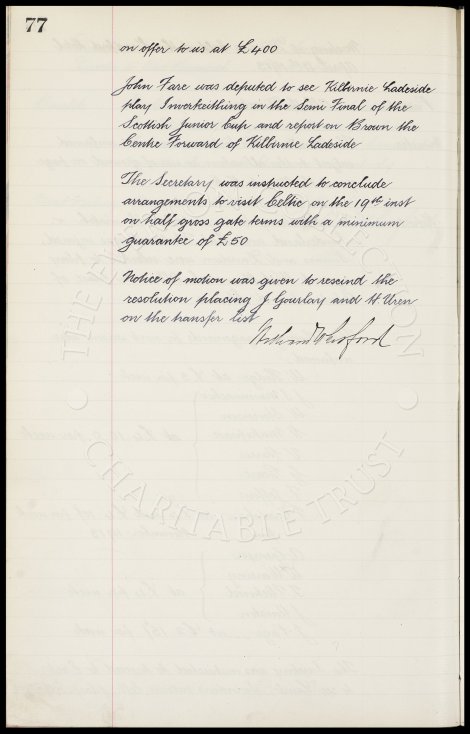 77
on offer to us at £400
John Fare was deputed to see Kilbirnie Ladeside
play Inverkeithing in the Semi Final of the
Scottish Junior Cup and report on Brown the
Centre Forward of Kilbirnie Ladeside
The Secretary was instructed to conclude
arrangements to visit Celtic on the 19th inst
on half gross gate terms with a minimum
guarantee of £50
Notice of motion was given to rescind the
resolution placing J Gourlay and H Uren
on the transfer list
THE EVERTON COLLECTION
CHARITABLE TRUST